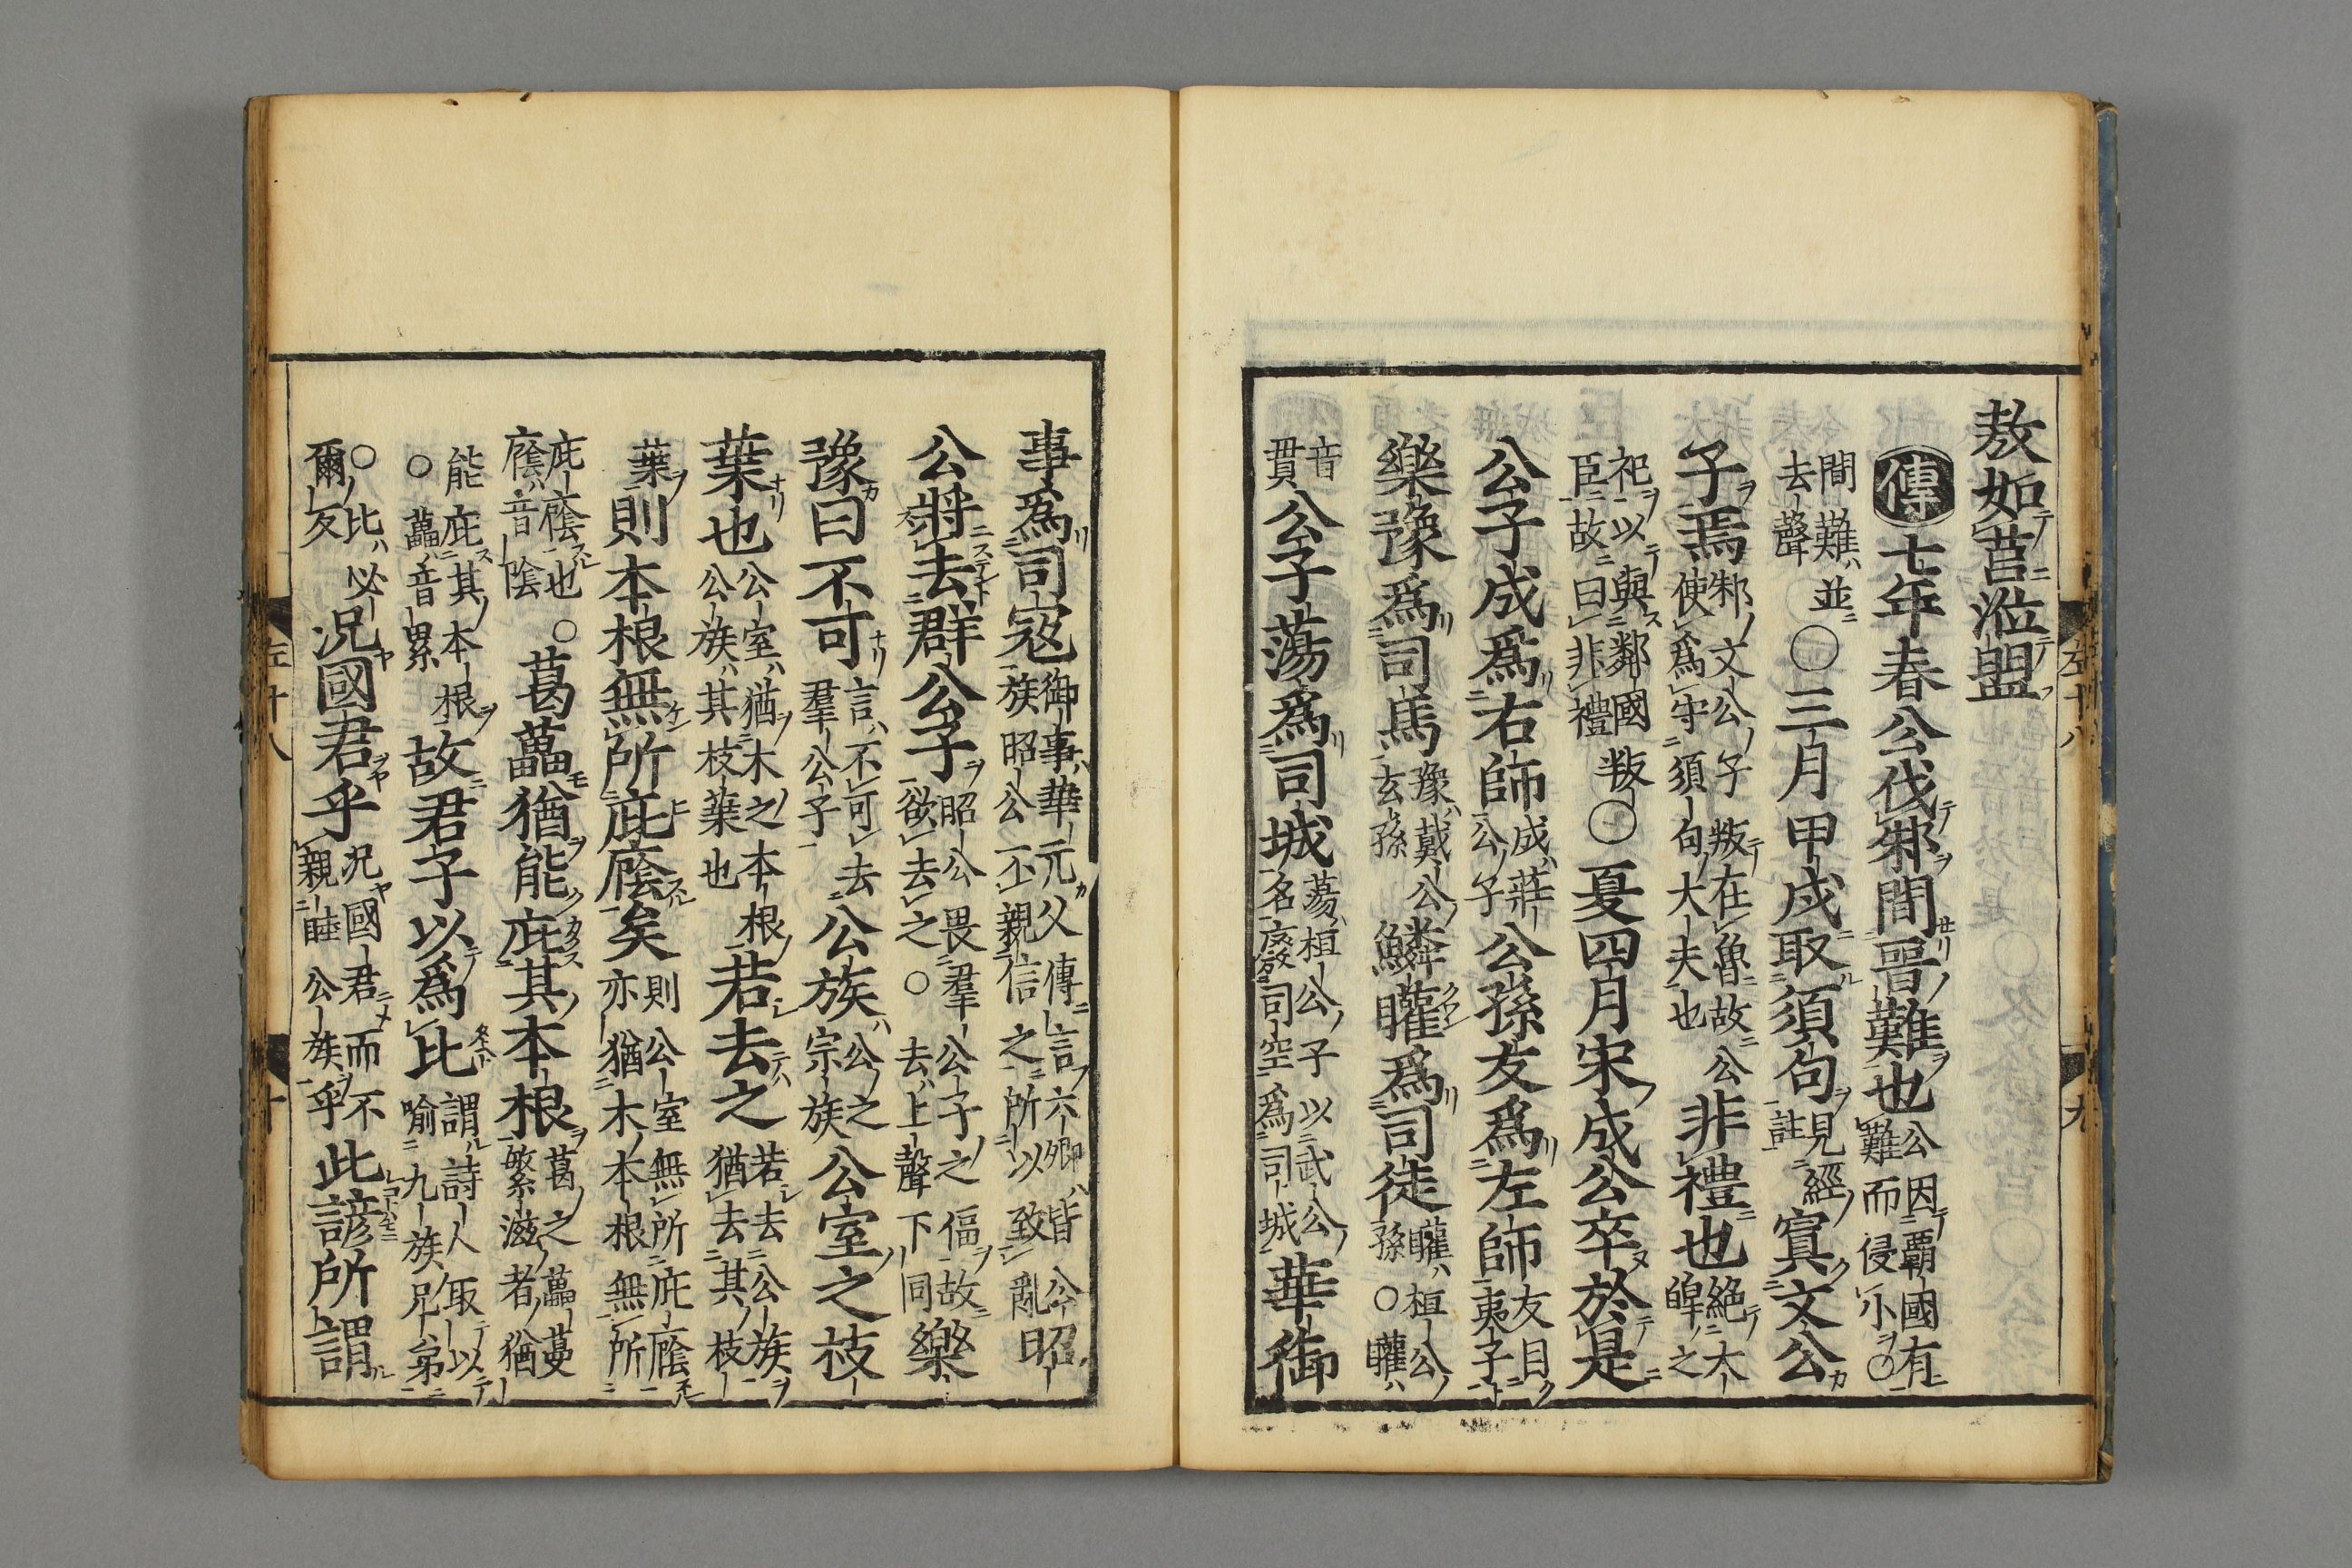 敖如莒涖盟
傳七年春公伐邾間晉難也公因覇國有難而侵小○
間難並去聲○三月甲戌取須句見經註寘文公
子焉邾文公子叛在魯故公使爲守須句大夫也非禮也絶大皥之
祀以與鄰國叛臣故曰非禮○夏四月宋成公卒於是
公子成爲右師成莊公子公孫友爲左師友目夷子
樂豫爲司馬豫戴公玄孫鱗矔爲司徒矔桓公孫○矔
音貫公子蕩爲司城蕩桓公子以武公名廢司空爲司城華御
左十八
九
事爲司寇御事華元父傳言六卿皆公族昭公不親信之所以致亂昭
公將去群公子昭公畏羣公子之偪故欲去之○去上聲下同樂
豫曰不可言不可去羣公子公族公之宗族公室之枝
葉也公室猶木之本根公族其枝葉也若去之若去公族猶去其枝
葉則本根無所庇廕矣則公室無所庇廕亦猶木本根無所
庇廕也○廕音陰葛藟猶能庇其本根葛之藟蔓繁滋者猶
能庇其本根○藟音累故君子以爲比謂詩人取以喻九族兄弟
○比必爾反況國君乎況國君而不親睦公族乎此諺所謂
左十八
十